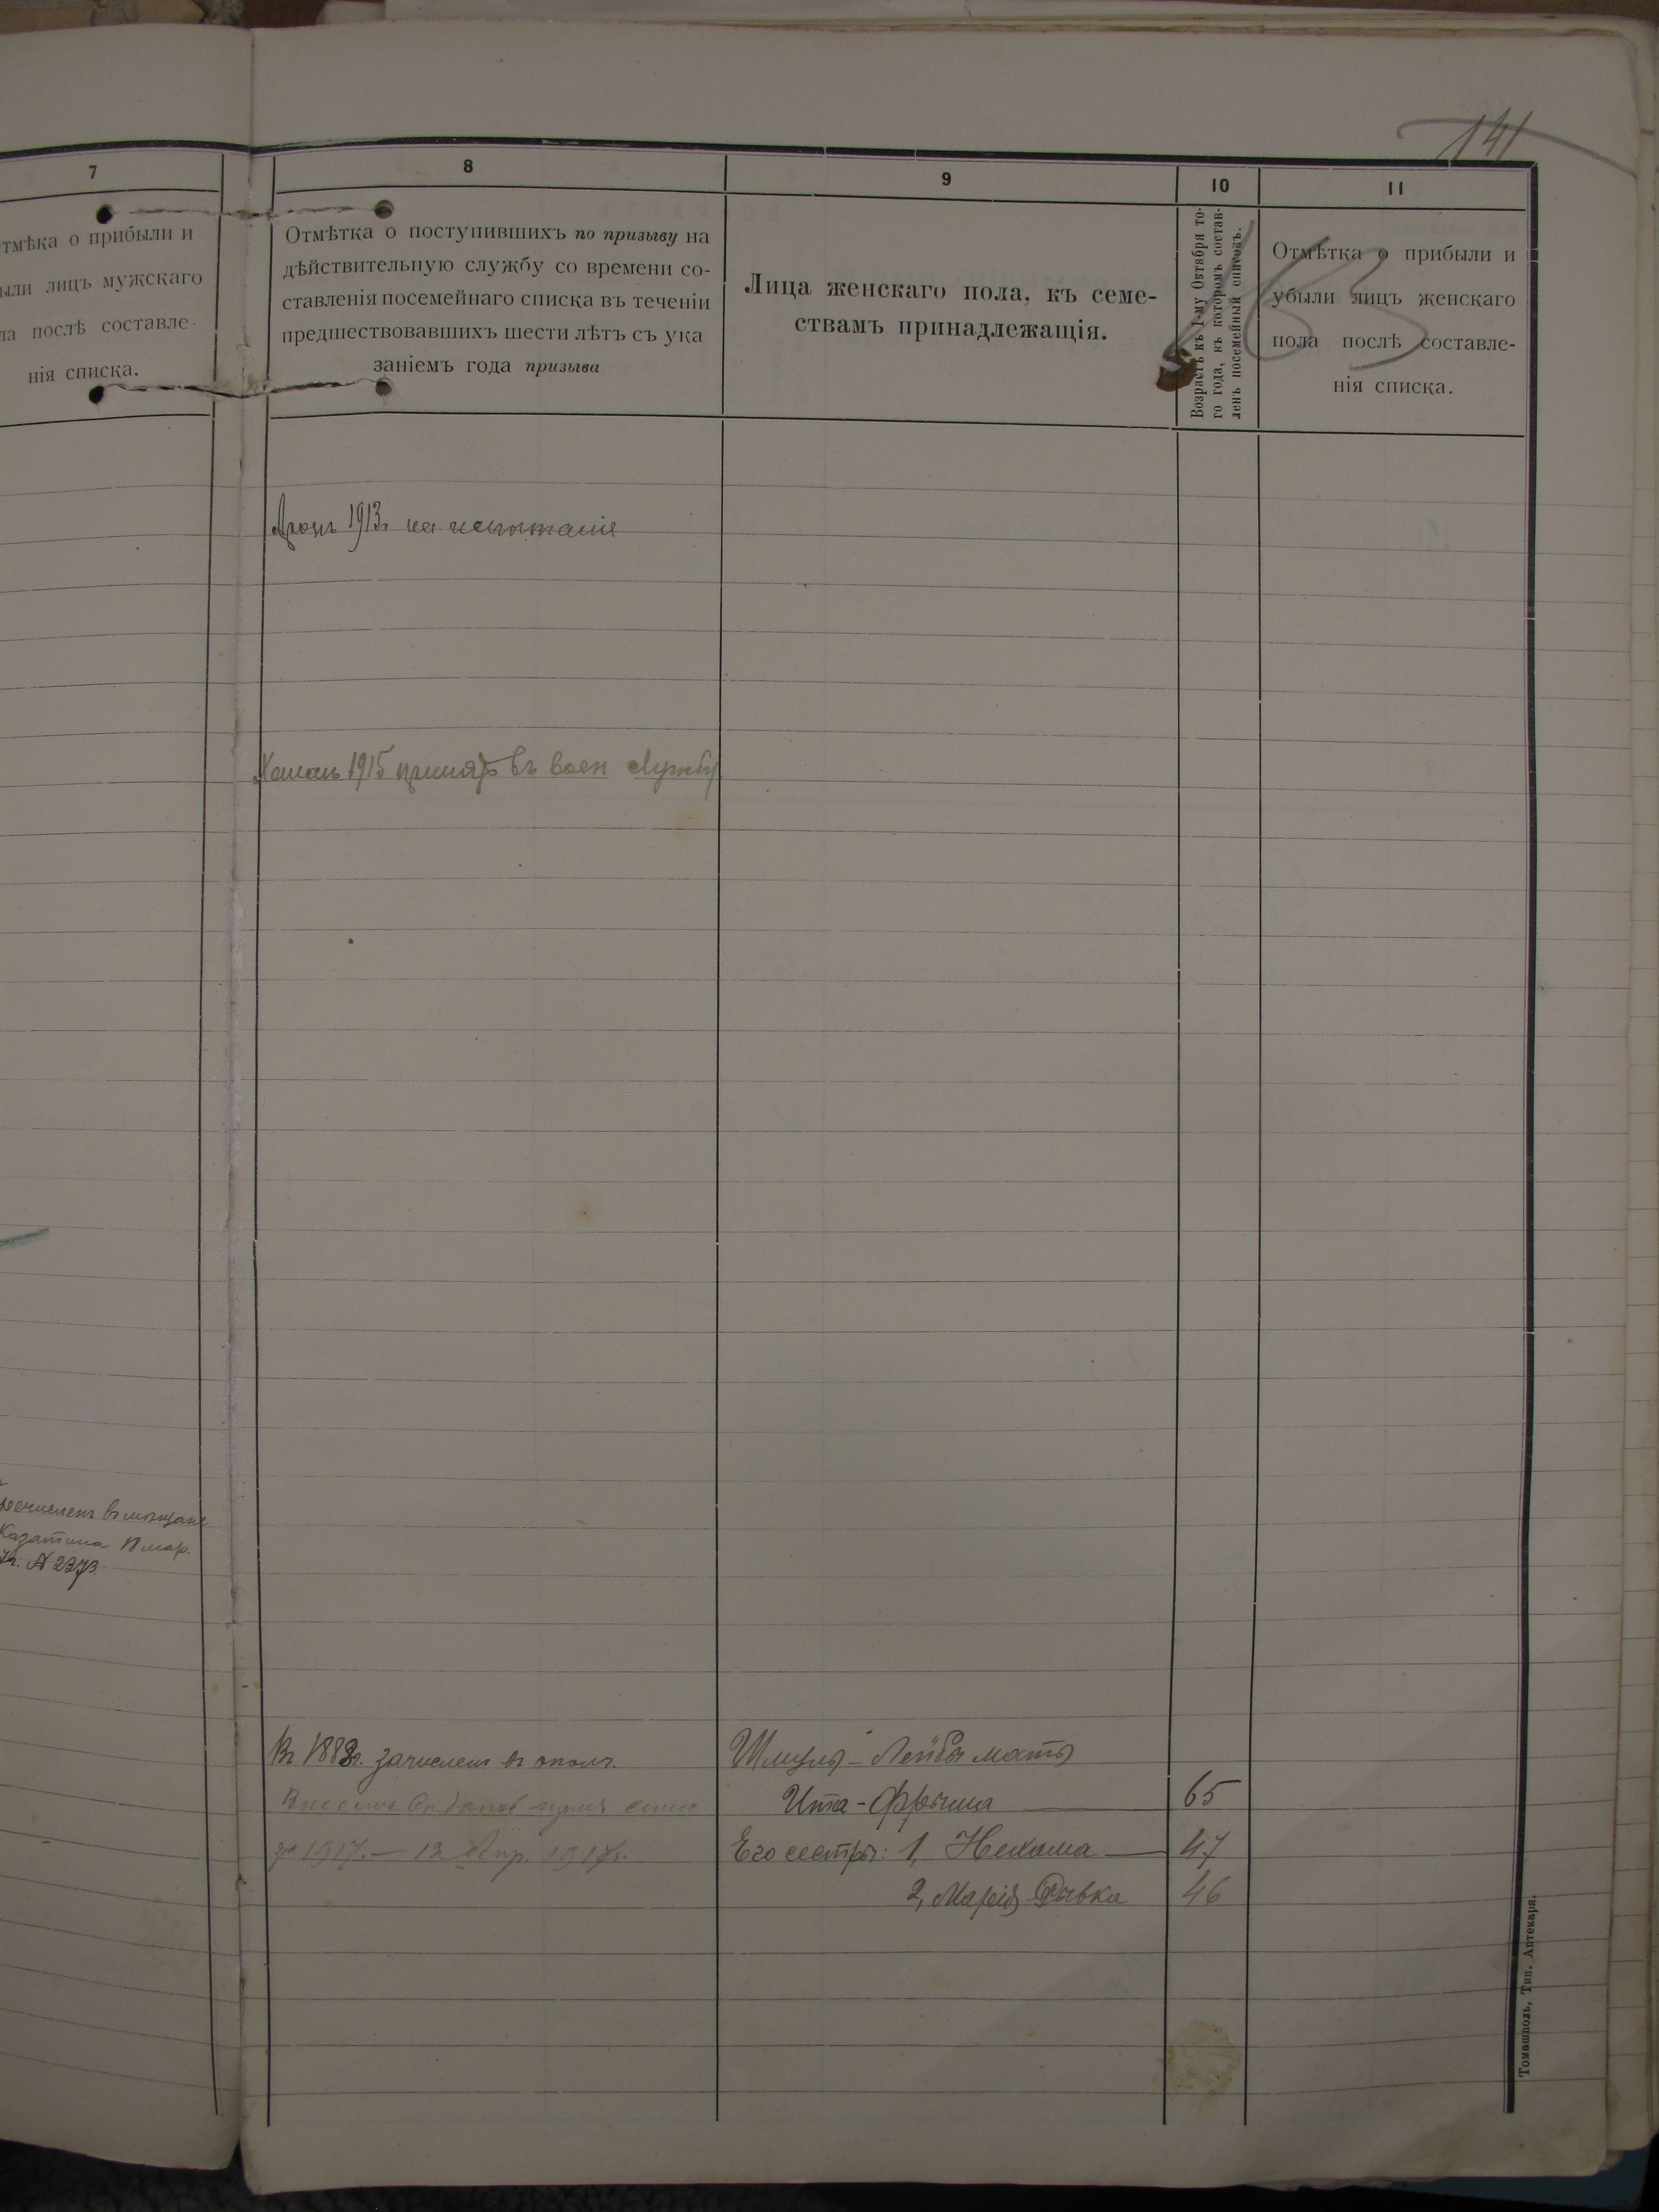 141
163
7
8
9
10
11
тмѣка о прибыли и
ыли лицъ мужскаго
ла послѣ составле-
нія списка.
Отмѣтка о поступившихъ по призыву на
дѣйствительную службу со времени со-
ставленія посемейнаго списка въ теченіи
предшествовавшихъ шести лѣтъ съ ука
заніемъ года призыва
Лица женскаго пола, къ семе-
ствамъ принадлежащія.
Возрастъ къ 1-му Октября то-
го года, въ которомъ состав-
ленъ посемейный списокъ.
Отмѣтка о прибыли и
убыли лицъ женскаго
пола послѣ составле-
нія списка.
Аронъ 1913г на испытаніе
1915 принятъ въ воен службу
въ мѣщане
Казатина 18 мар.
№ 2273
Въ 1888г. зачисленъ въ ополч.
1917. — 12 Апр. 1917г.
Шмуля-Лейбы мать
Ита-Фрыма 65
Его сестры: 1, Нехома 47
2, Марія Рывка 46
Томашполь, Тип. Аптекаря.